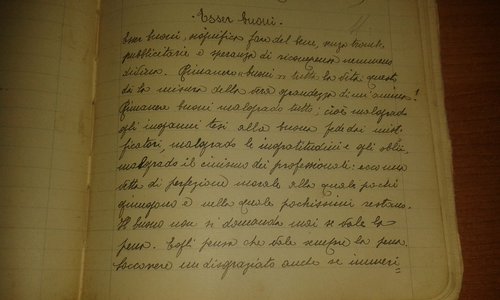 Esser buoni.
Esser buoni, significa fare del bene, senza
pubblicitarie e speranza di ricompensa nemmeno
divina. Rimanere "buoni" tutta la vita: questa
dà la misura della vera grandezza di un'anima!
Rimanere buoni malgrado tutto; cioè malgrado
gli inganni tesi alla buona fede dei misti-
ficatori, malgrado le ingratitudini e gli oblii
malgrado il cinismo dei professionali: ecco una
vetta di perfezione morale alla quale pochi
giungono e nella quale pochissimi restano.
Il buono non si domanda mai se vale la
pena. Egli pensa che vale sempre la pena
soccorrere un disgraziato anche se immeri-